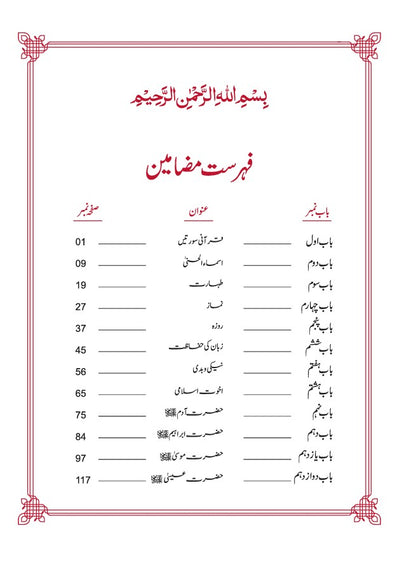 بِسْمِ اللهِ الرَّحْمٰنِ الرَّحِيْمِ
فہرست مضامین
باب نمبر عنوان صفحہ نمبر
باب اول قرآنی سورتیں 01
باب دوم اسماء الحسنیٰ 09
باب سوم طہارت 19
باب چہارم نماز 27
باب پنجم روزہ 37
باب ششم زبان کی حفاظت 45
باب ہفتم نیکی و بدی 56
باب ہشتم اخوت اسلامی 65
باب نہم حضرت آدم 75
باب دہم حضرت ابراہیم 84
باب یازدہم حضرت موسیٰ 97
باب دوازدہم حضرت عیسیٰ 117